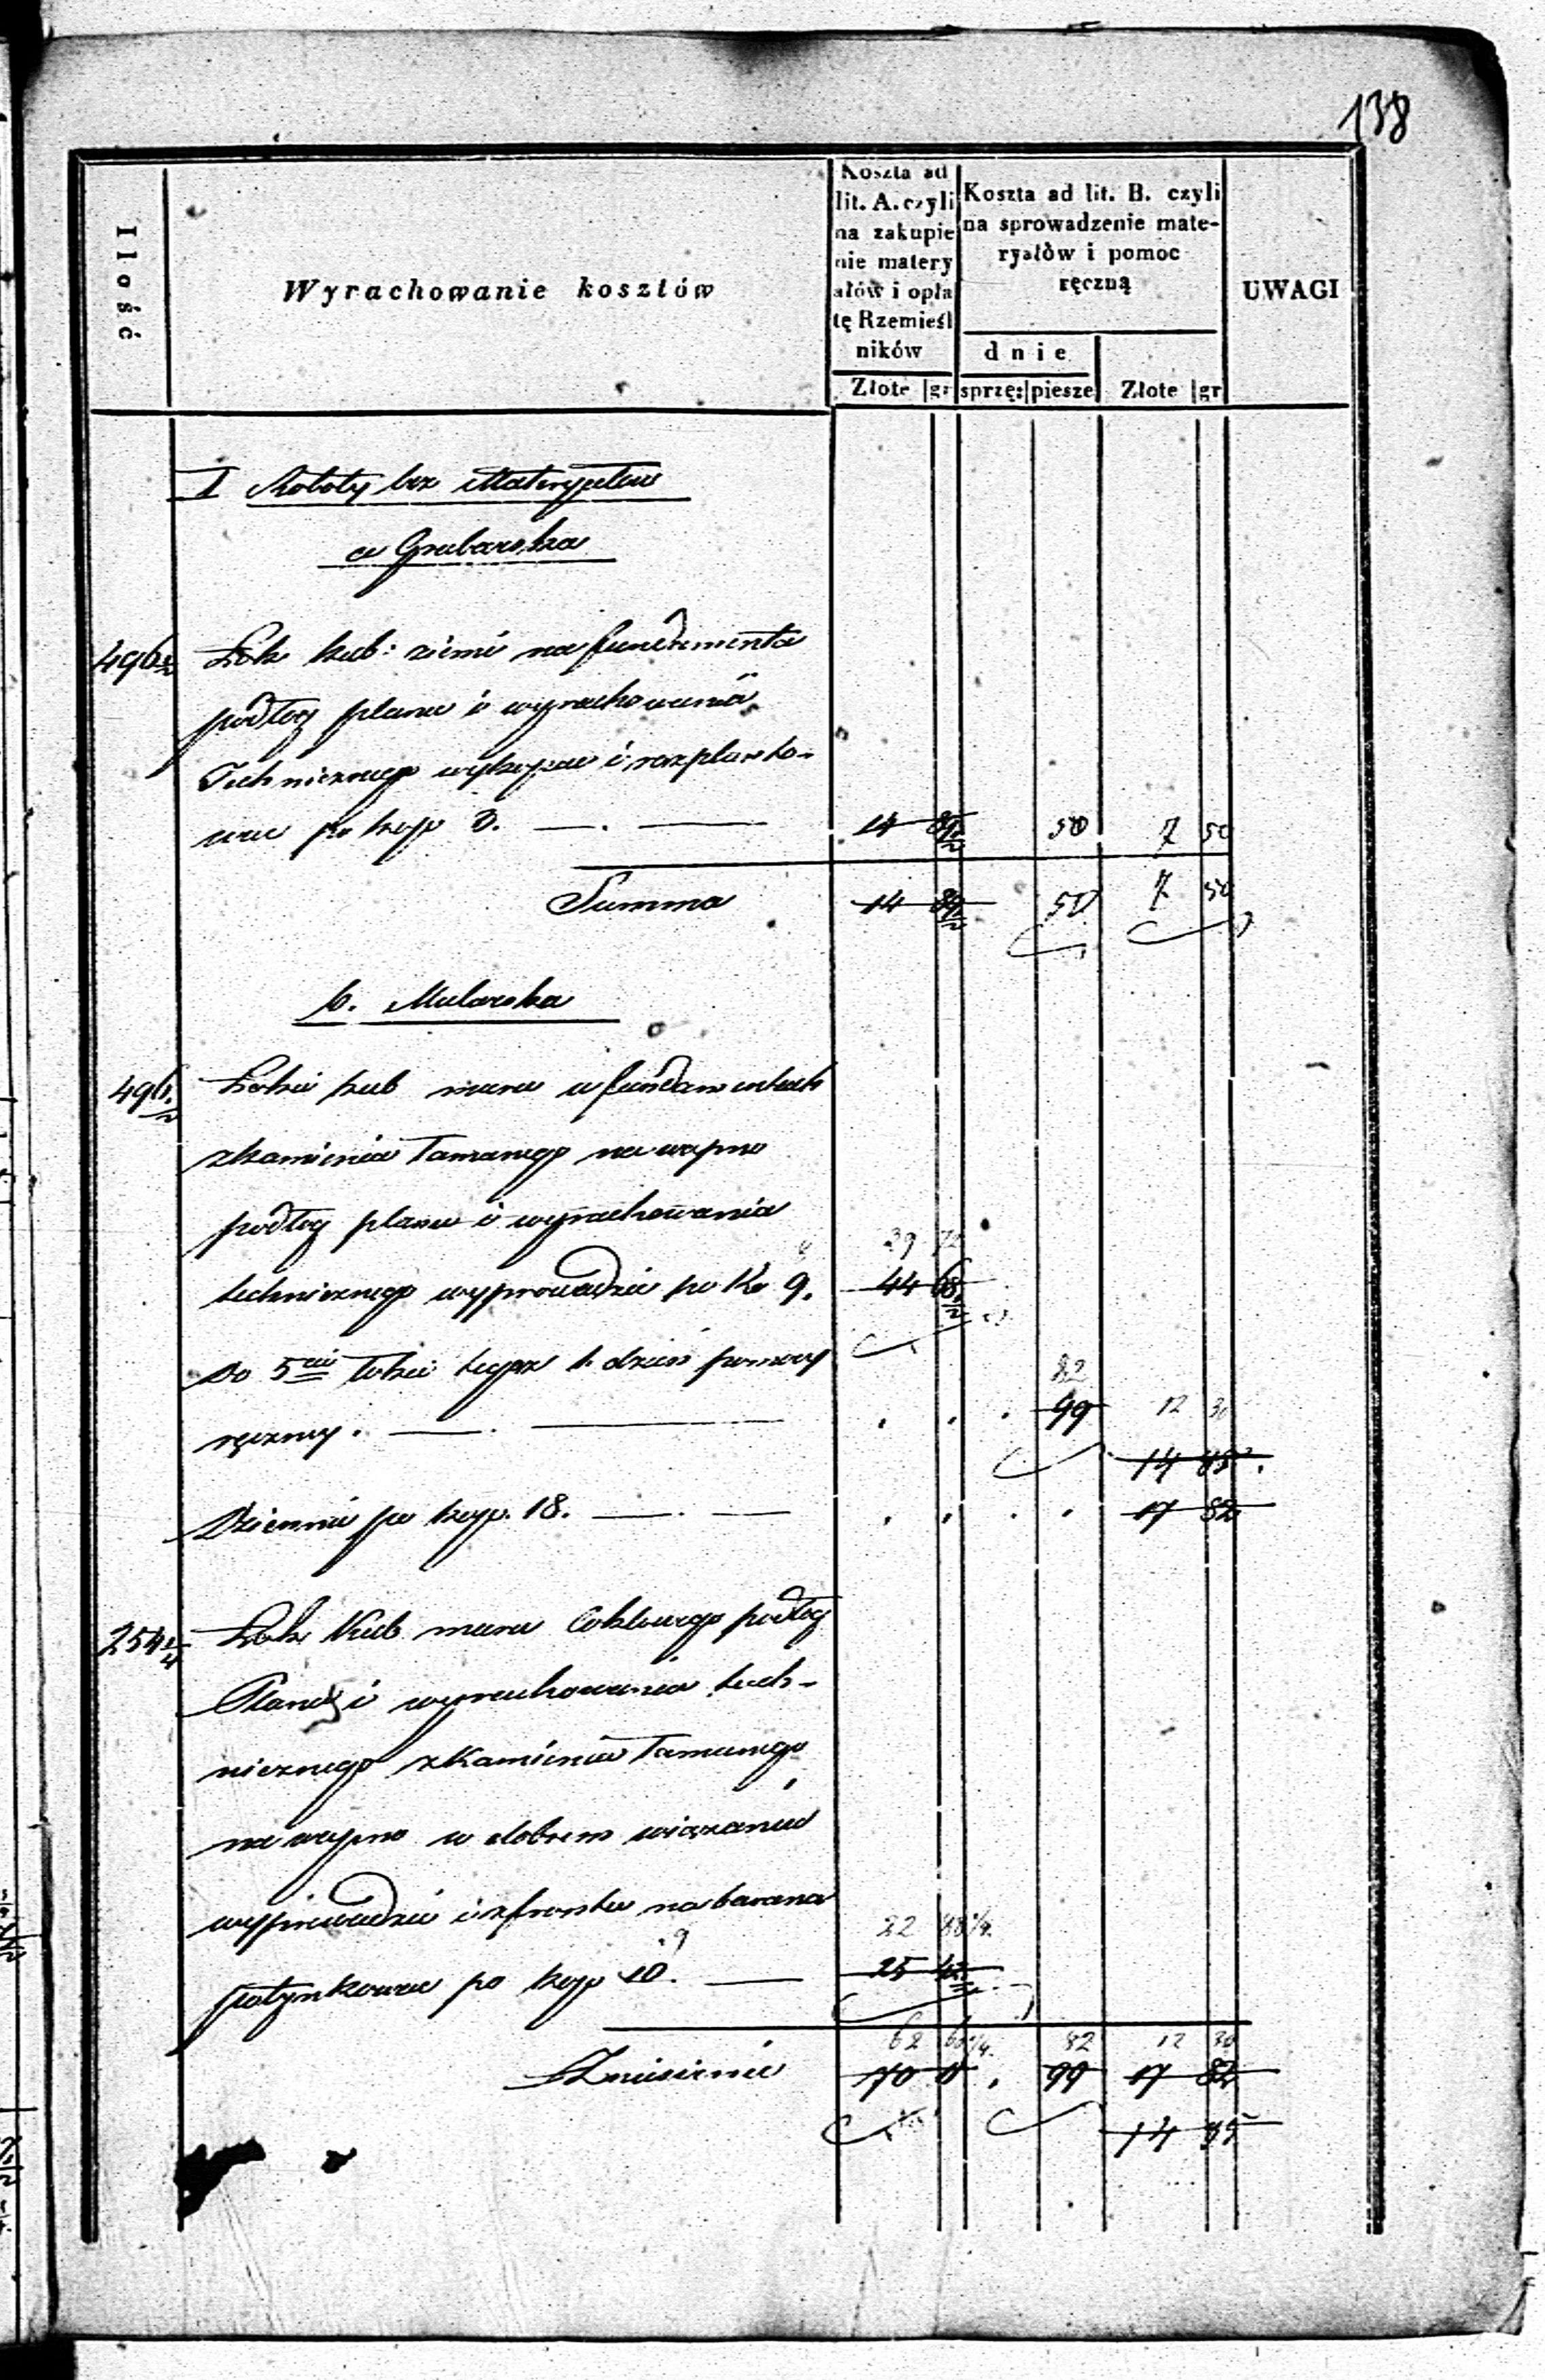 138
Ilość
Wyrachowanie kosztów
Koszta ad
lit. A. czyli
na zakupie
nie matery
ałów i opła
tę Rzemieśl
ników
Złote gr
Koszta ad lit. B. czyli
na sprowadzenie mate-
ryałów i pomoc
ręczną
dnie
sprzę: piesze
Złote gr
UWAGI
I Roboty bez Materyałów
a Grabarska
496 1/2 Łok kub: ziemi na fundamenta
podług planu i wyrachowania
Technicznego wykopać i rozplanto-
wać po kop 3. 14 89 1/2 50 7 50
Summa 14 89 1/2 50 7 50
b. Mularska
496 1/2 Łokci kub muru w fundamentach
z kamienia łamanego na wapno
podług planu i wyrachowania
39 72
technicznego wyprowadzić po Ko 9. 44 68 1/2
Do 5ciu łokci tegoż 1 dzień pomocy
82
ręczney. 99 12 30
14 85
Dziennie po kop. 18. 17 82
254 1/4 Łok Kub muru Coklowego podług
Planu i wyrachowania tech-
nicznego z Kamienia łamanego
na wapno w dobrem wiązaniu
wyprowadzić i z frontu na barana
22 88 1/4
9
potynkować po kop 10. 25 42
62 60 1/4 82 12 30
Zniesienie 70 0 99 17 82
14 85